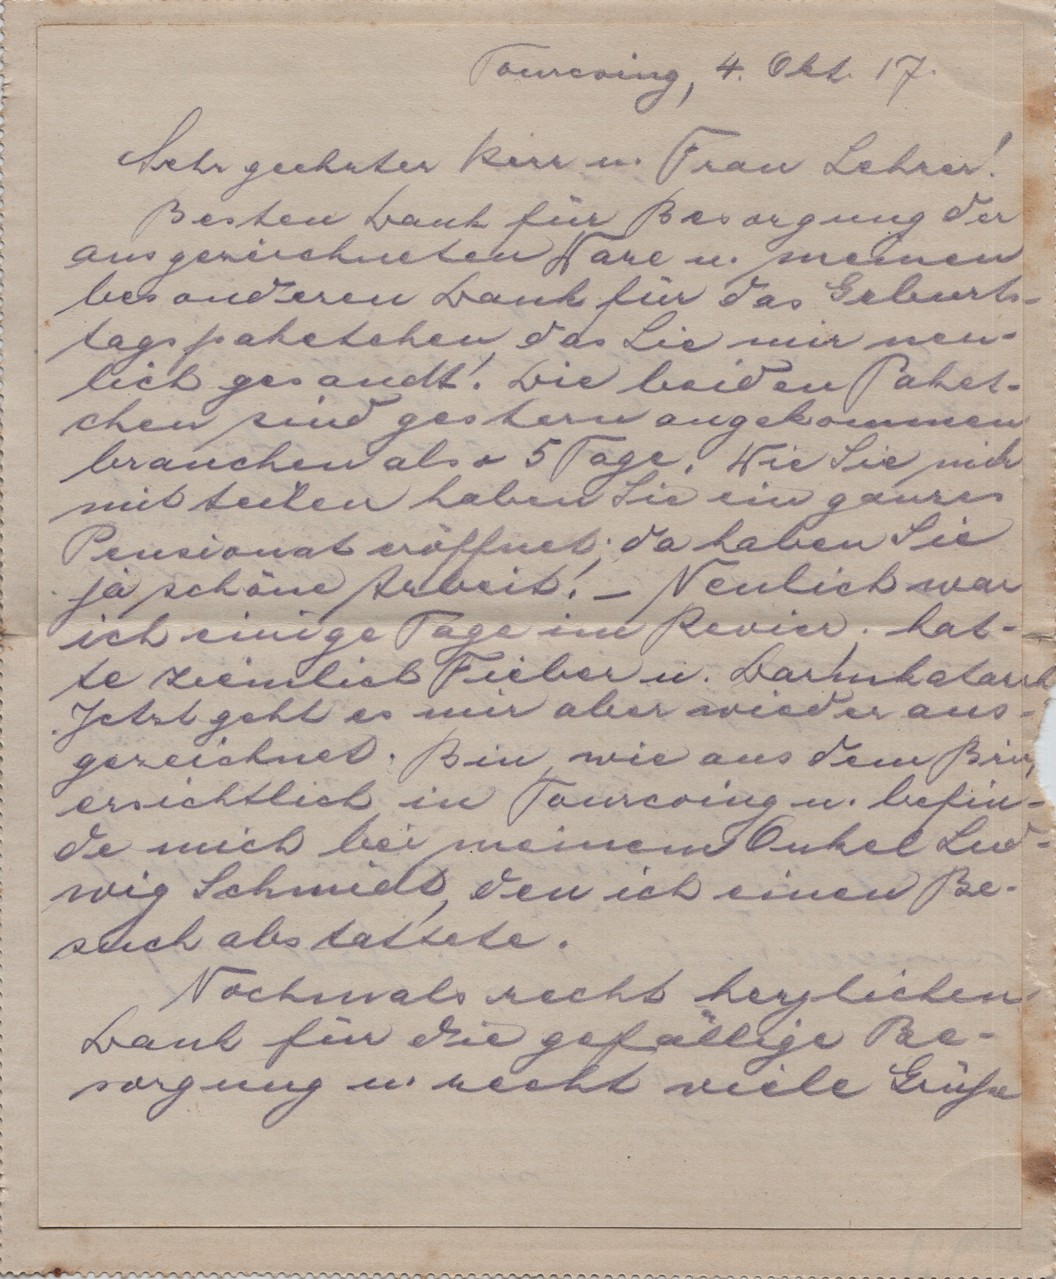 Tourcoing, 4. Okt. 17.
Sehr geehrter Herr u. Frau Lehrer!
Besten Dank für Besorgung der
ausgezeichneten Ware u. meinen
besonderen Dank für das Geburts-
tagspaketchen das Sie mir neu-
lich gesandt! Die beiden Paket-
chen sind gestern angekommen
brauchen also 5 Tage. Wie Sie mir
mitteilen haben Sie ein ganzes
Pensionat eröffnet; da haben Sie
ja schöne Arbeit! – Neulich war
ich einige Tage im Revier, hat-
te ziemlich Fieber u. Darmkatarrh
Jetzt geht es mir aber wieder aus-
gezeichnet. Bin, wie aus dem
ersichtlich in Tourcoing u. befin-
de mich bei meinem Onkel Lud-
wig Schmidt, den ich einen Be-
such abstattete.
Nochmals recht herzlichen
Dank für die gefällige Be-
sorgung u. recht viele Grüße